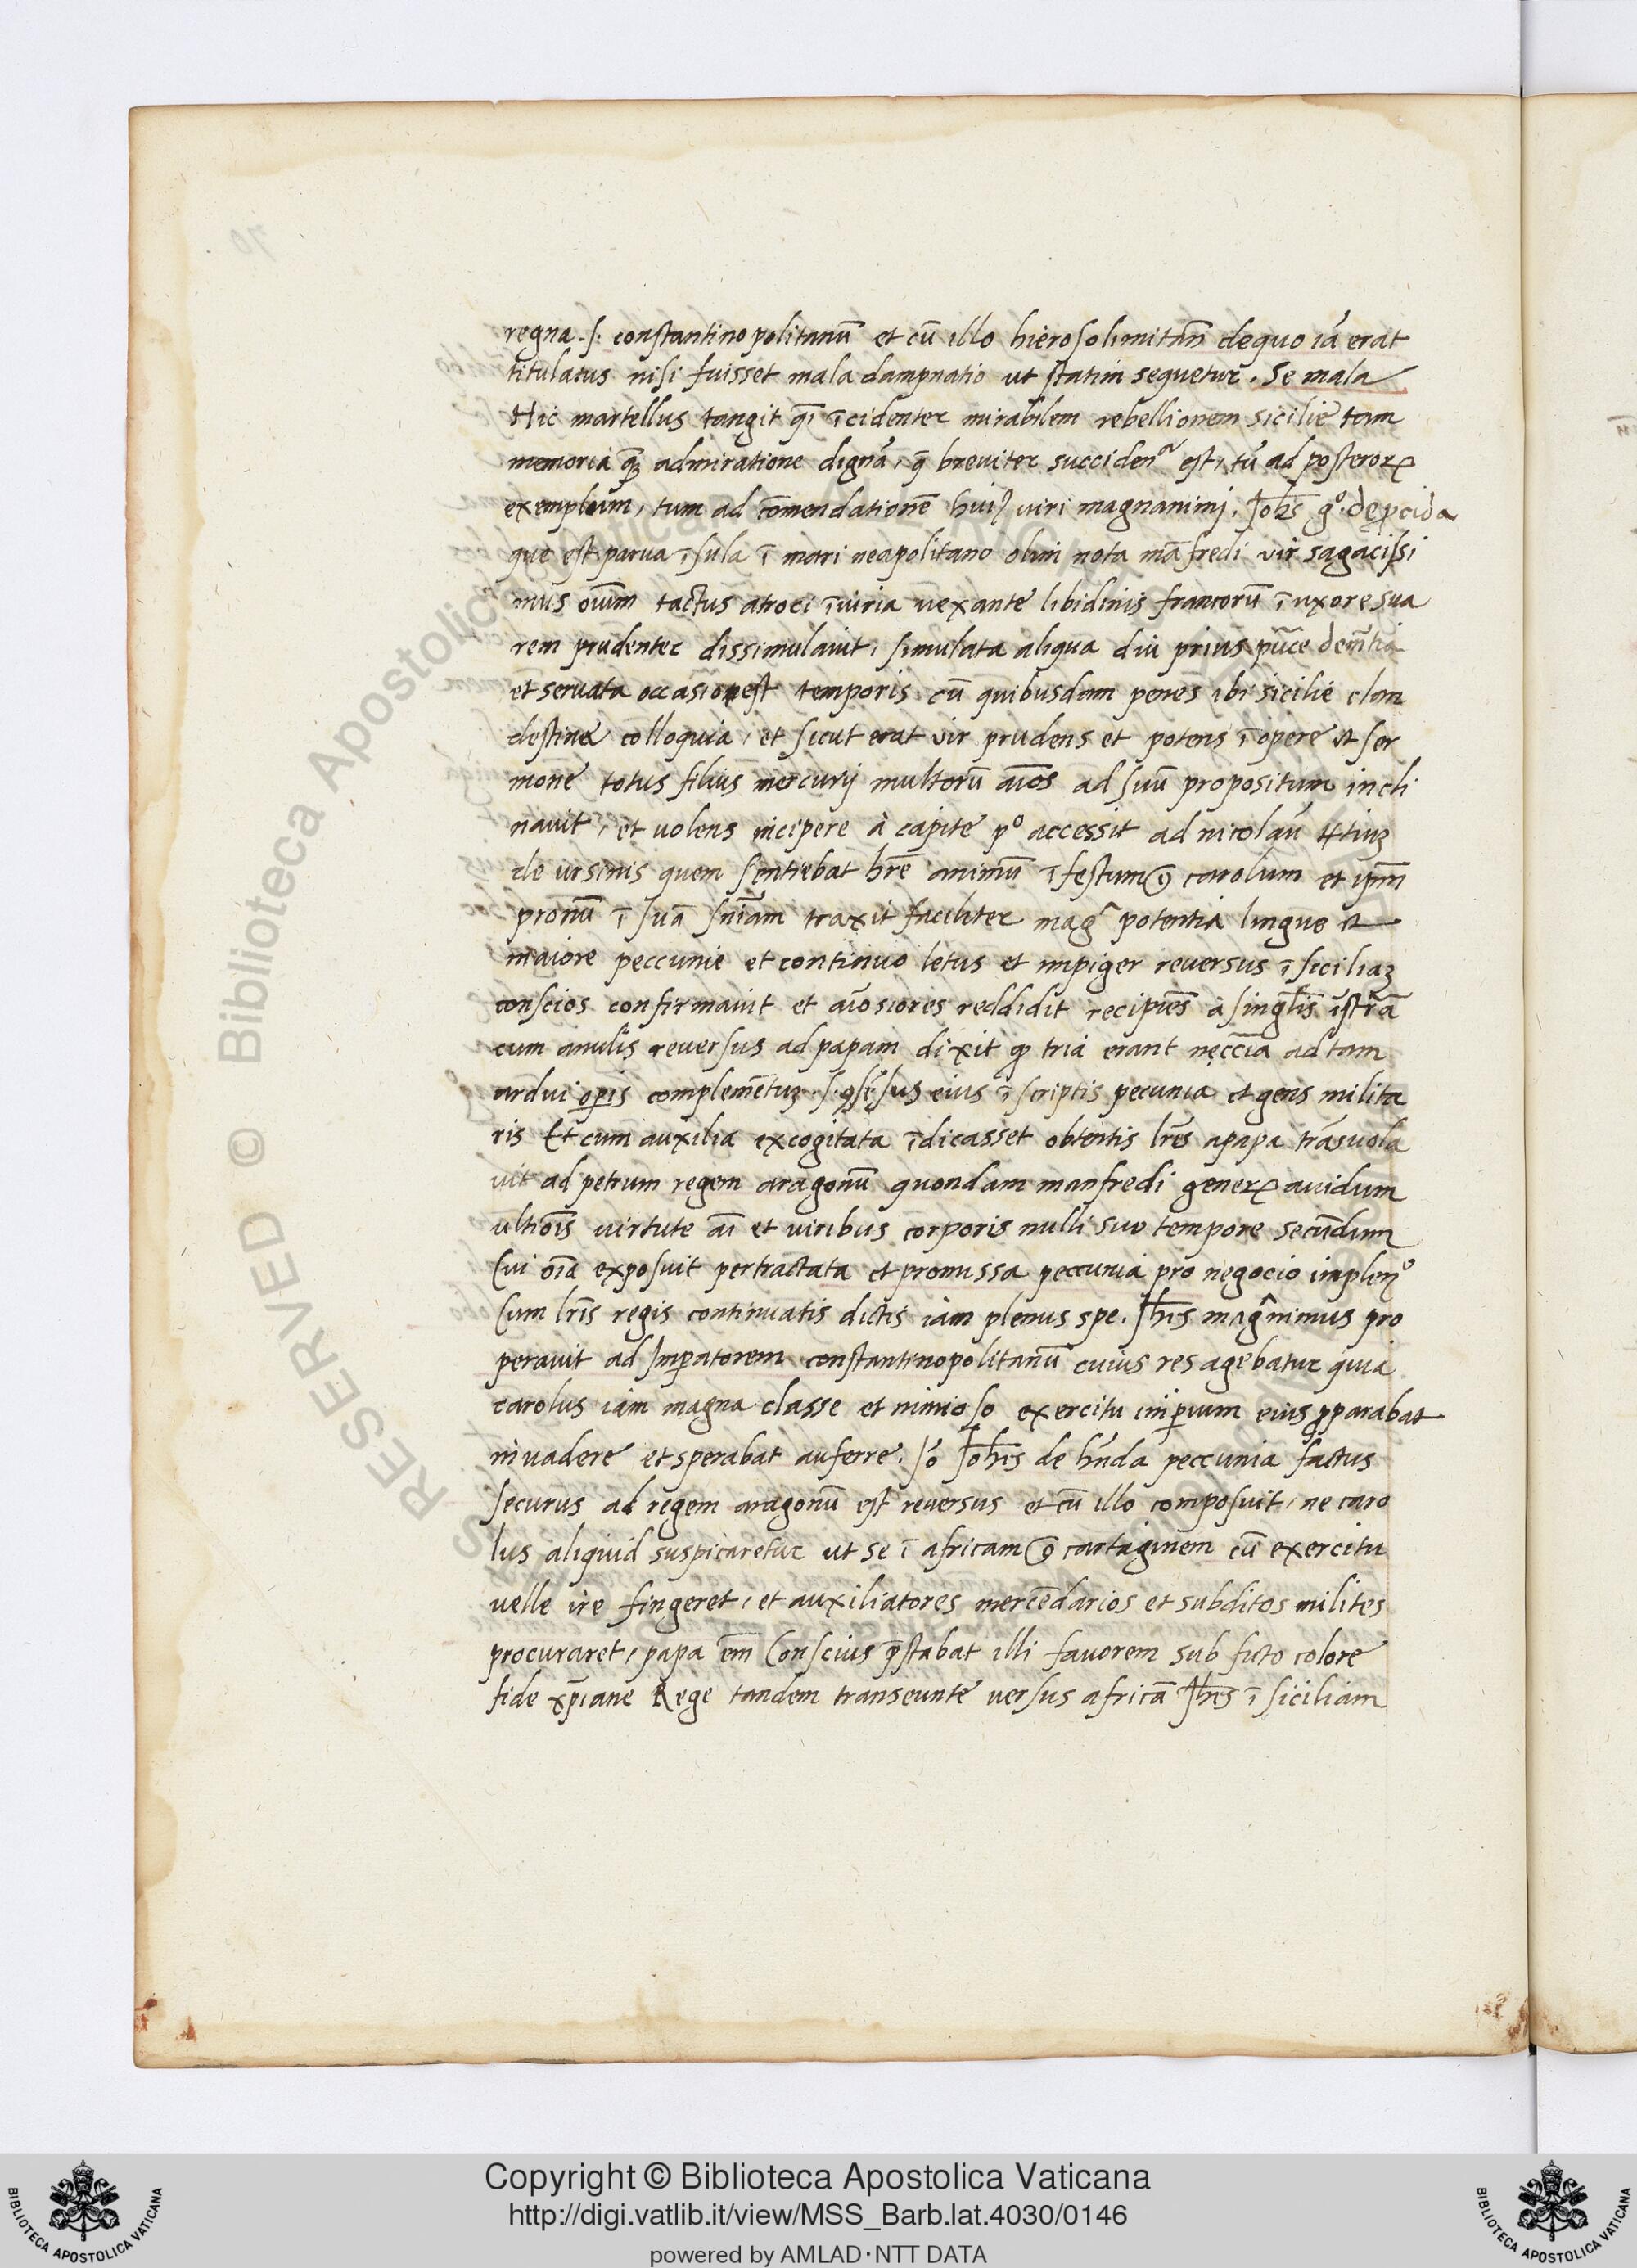 regna .ſ. conſtantinopolitanū et cū illo hieroſolimitān de quo iā erat
titulatus niſi fuisset mala dampnatio ut ſtatim sequetur. Se mala
Hic martellus tangit q̄i īcidenter mirabilem rebellionem sicilie tam
memoria quā admiratione dignā, q̄ breuiter succidenͣ eſt, tū ad poſteroꝝ
exemplum, tum ad cōmendationē huiꝰ uiri magnanimi. Joh̄s gͦ. de ꝓcida
que eſt parua īſula ī mari neapolitano olim nota māfredi vir sagaciſsi
mus oīum tactus atroci īiuria uexante libidinis francorū ī uxore sua
rem prudenter dissimulauit, ſimulata aliqua diu prius
et seruata occasione temporis cū quibusdam ibi sicilie clan
deſtina colloquia, et ſicut erat vir prudens et potens ī opere et ſer
mone totus filius mercurij multorū aīos ad ſuū propositum incli
nauit, et uolens incipere à capite pͦ accessit ad nicolaū tꝰtiuꝫ
de ursinis quem ſentiebat hr̄e animū īfeſtum ꝯ̄ carolum et ip̄m
pronū ī ſuā ſn̄iam traxit faciliter magͣ potentia lingue et
maiore peccunie et continuo letus et impiger reuersus ī ſiciliaꝫ
conſcios confirmauit et aīoſiores reddidit recipiēs a ſingl̄is
cum anulis reuerſus ad papam dixit ꝙ tria erant nęcc̄ia ad tam
ardui oꝑis complemētuꝫ .ſ. ꝯſēſuꝫ eius ī ſcriptis pecunia et gens milita
ris Et cum auxilia excogitata īdicasset obtentis lr̄es a papa trāsuola
uit ad petrum regem aragonū quondam manfredi generꝝ auidum
ultiōis virtute aī et uiribus corporis nulli suo tempore secūdum
Cui oīa expoſuit pertractata et promissa peccunia pro negocio implen̄ͦ
Cum lr̄is regis continuatis dictis iàm plenus spe. Jh̄s magn̄imus pro
perauit ad Imꝑatorem conſtantinopolitanū cuius res agebatur quia
carolus iàm magna classe et nimioſo exercitu imꝑium eius p̄parabat
inuadere et sperabat auferre. Iō Joh̄is de h̄nda peccunia factus
ſecurus ad regem aragonū eſt reuersus et cū illo compoſuit, ne caro
lus aliquid suspicaretur ut se ī africam ꝯ̄ cartaginem cū exercitu
uelle ire fingeret, et auxiliatores mercēdarios et subditos milites
procuraret, papa em̄ Conſcius p̄ſtabat illi fauorem sub ficto colore
fide xp̄iane Rege tandem transeunte uerſus africā Jh̄s ī ſiciliam
Copyright © Biblioteca Apostolica Vaticana
http://digi.vatlib.it/view/MSS_Barb.lat.4030/0146
powered by AMLAD·NTT DATA
BIBLIOTECA APOSTOLICA VATICANA
BIBLIOTECA APOSTOLICA VATICANA